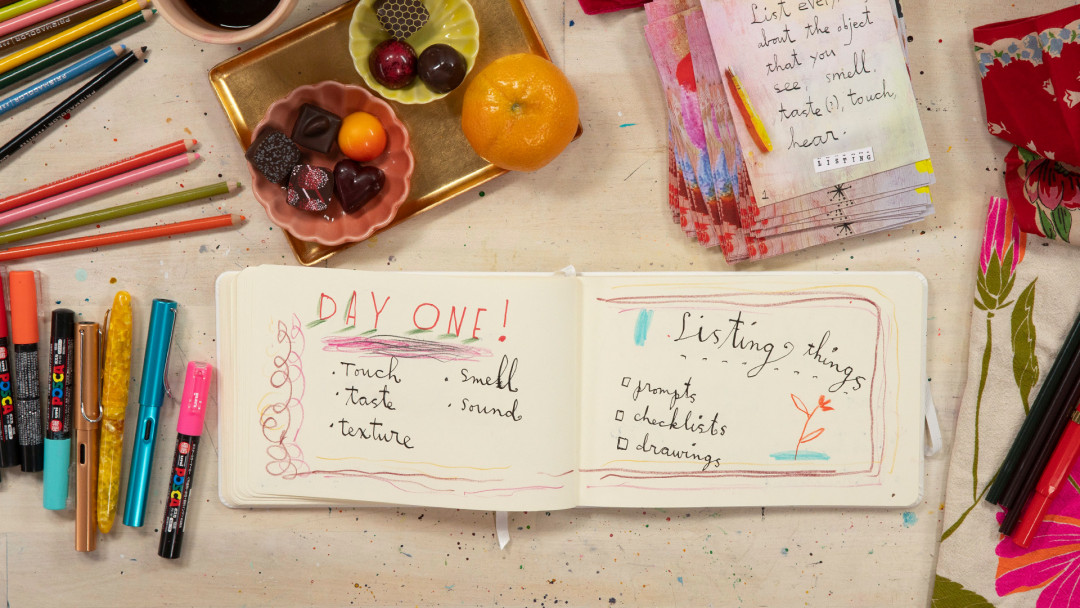 List every
about the object
that you
see, smell,
taste(!), touch,
hear.
LISTING
1
DAY ONE!
· Touch
· taste
· texture
· smell
· sound
Listing things
□ prompts
□ checklists
□ drawings
POSCA
POSCA
POSCA
POSCA